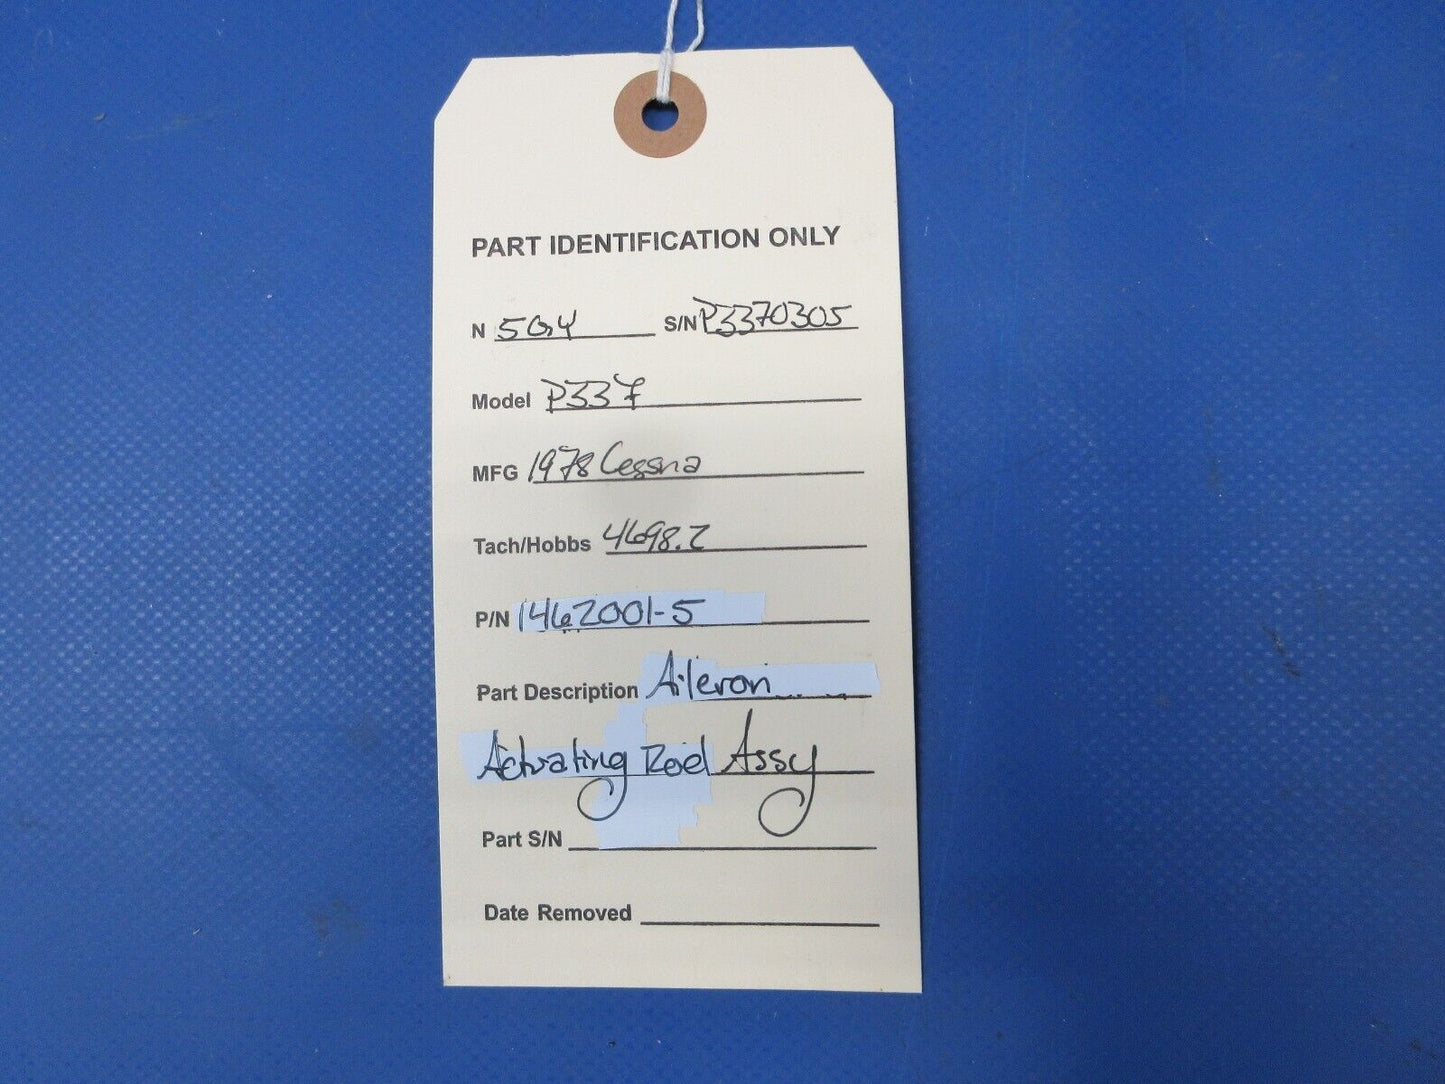 PART IDENTIFICATION ONLY
N 5GY S/N P3370305
Model P337
MFG 1978 Cessna
Tach/Hobbs 4698.2
P/N 1462001-5
Part Description Aileron
Actuating Rod Assy
Part S/N
Date Removed